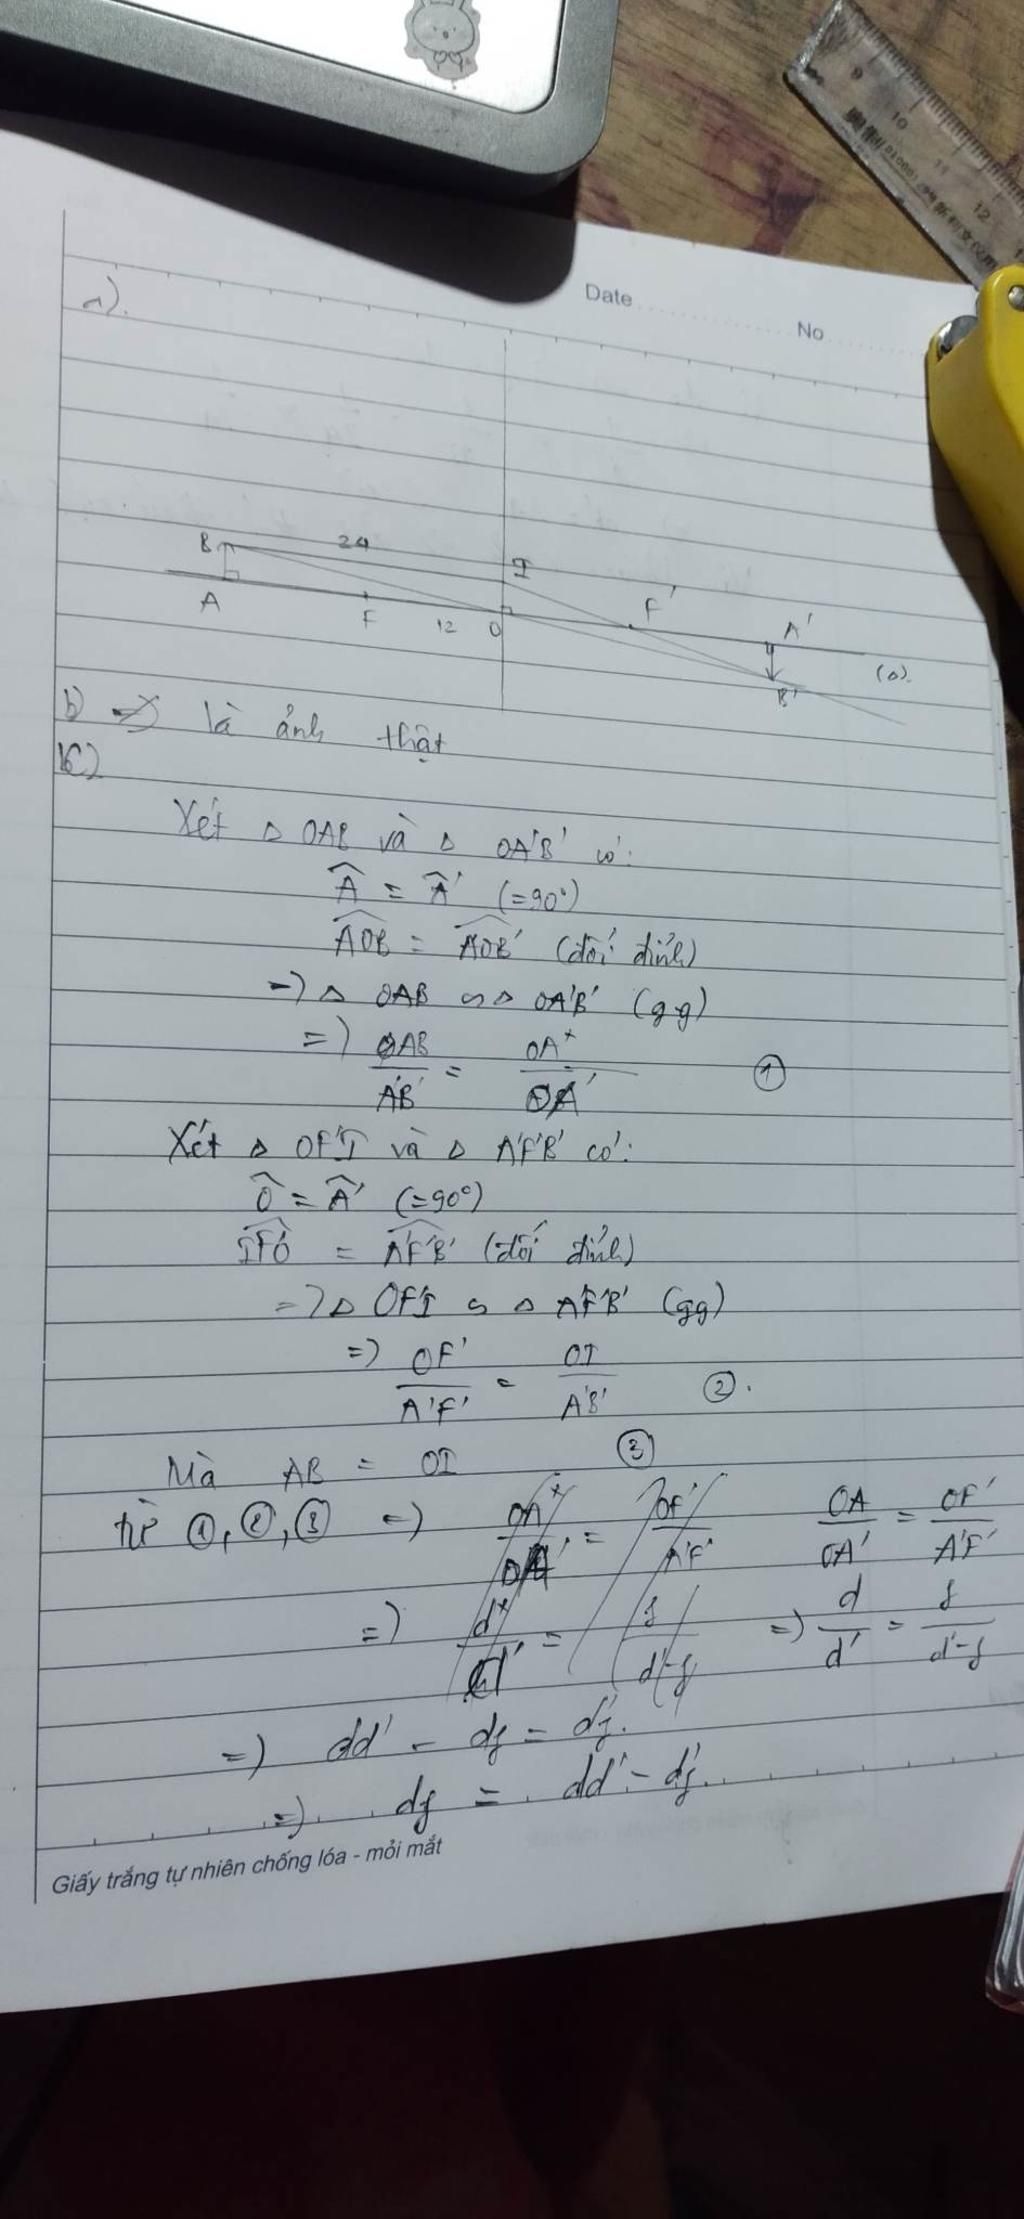 9
10
11
12
Date
No
a).
B
24
I
A
F
12
O
F'
A'
B'
(Δ).
b) => là ảnh thật
c)
Xét Δ OAB và Δ OA'B' có:
Â = Â' (=90°)
AOB = A'OB' (đối đỉnh)
=> Δ OAB ∽ Δ OA'B' (g.g)
=> AB/A'B' = OA/OA' ①
Xét Δ OF'I và Δ A'F'B' có:
Ô = Â' (=90°)
IF'O = A'F'B' (đối đỉnh)
=> Δ OF'I ∽ Δ A'F'B' (gg)
=> OF'/A'F' = OI/A'B' ②.
Mà AB = OI ③
từ ①, ②, ③ => OA/OA' = OF'/A'F' OA/OA' = OF'/A'F'
=> d/d' = f/d'-f => d/d' = f/d'-f
=> dd' - df = d'f.
=> df = dd' - d'f.
Giấy trắng tự nhiên chống lóa - mỏi mắt